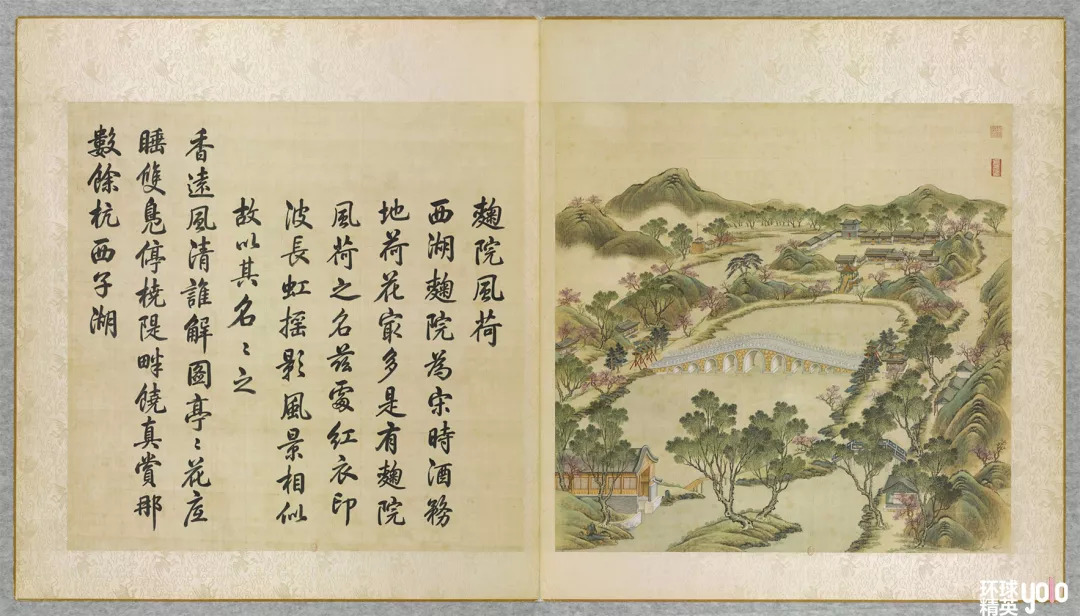 麴院風荷
西湖麴院為宋時酒務
地荷花㝡多是有麴院
風荷之名兹處紅衣印
波長虹摇影風景相似
故以其名〻之
香遠風清誰解圖亭〻花底
睡雙鳧停橈隄畔饒真賞那
數餘杭西子湖
环球
精英 yolo